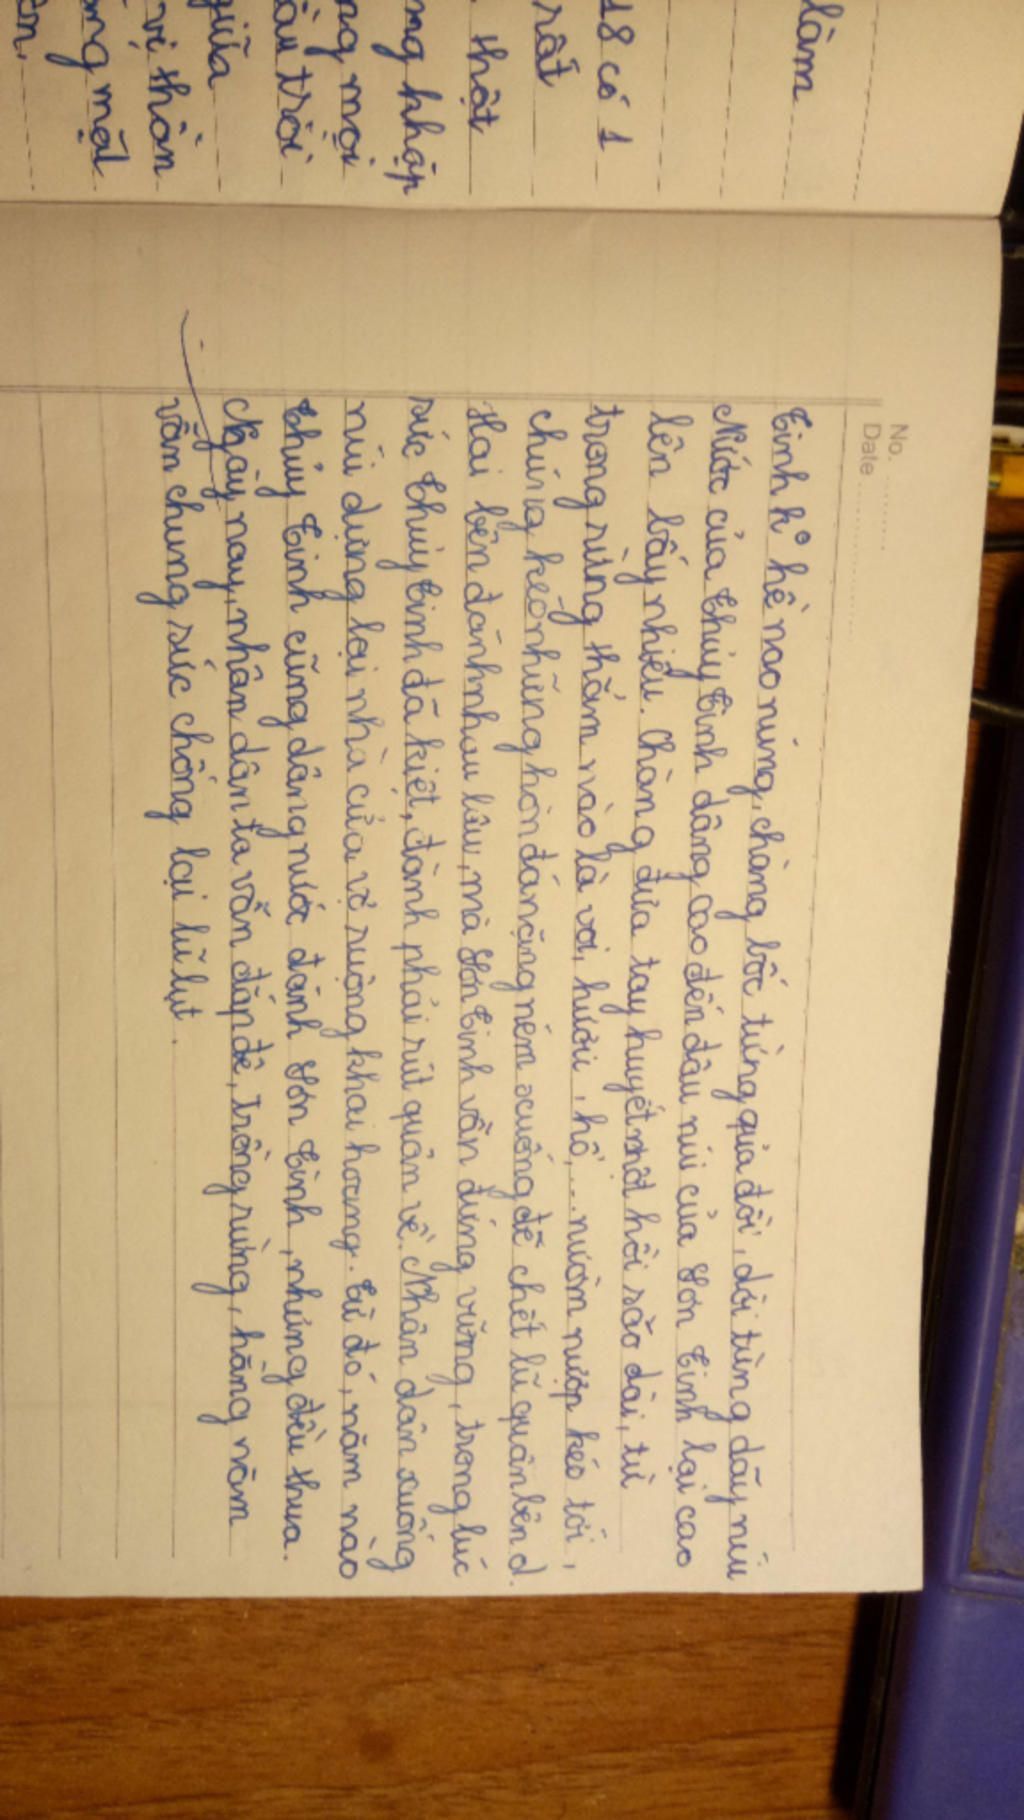 lâm
18 có 1
rất
thật
ng nhập
ng mọi
ầu trời
giữa
vị thần
ong mặt
ên.
No. ............
Date ........................
Tinh hề nao núng, chàng bốc từng quả đồi, dời từng dãy núi
Nước của Thủy Tinh dâng cao đến đâu núi của Sơn Tinh lại cao
lên bấy nhiêu. Chàng đưa tay huyết một hồi são dài, từ
trong rừng thẳm nào là voi, hươu, hổ,... nườm nượp kéo tới,
chúng kéo những hòn đá nặng ném xuống đề chết lũ quân bên d.
Hai bên đánh nhau lâu, mà Sơn Tinh vẫn đứng vững, trong lúc
sức Thủy Tinh đã kiệt, đành phải rút quân về. Nhân dân xuống
núi dựng lại nhà cửa về ruộng khai hoang. Từ đó, năm nào
Thủy Tinh cũng dâng nước đánh Sơn Tinh, nhưng đều thua.
Ngày nay, nhân dân ta vẫn đắp đê, trồng rừng, hằng năm
vẫn chung sức chống lại lũ lụt.